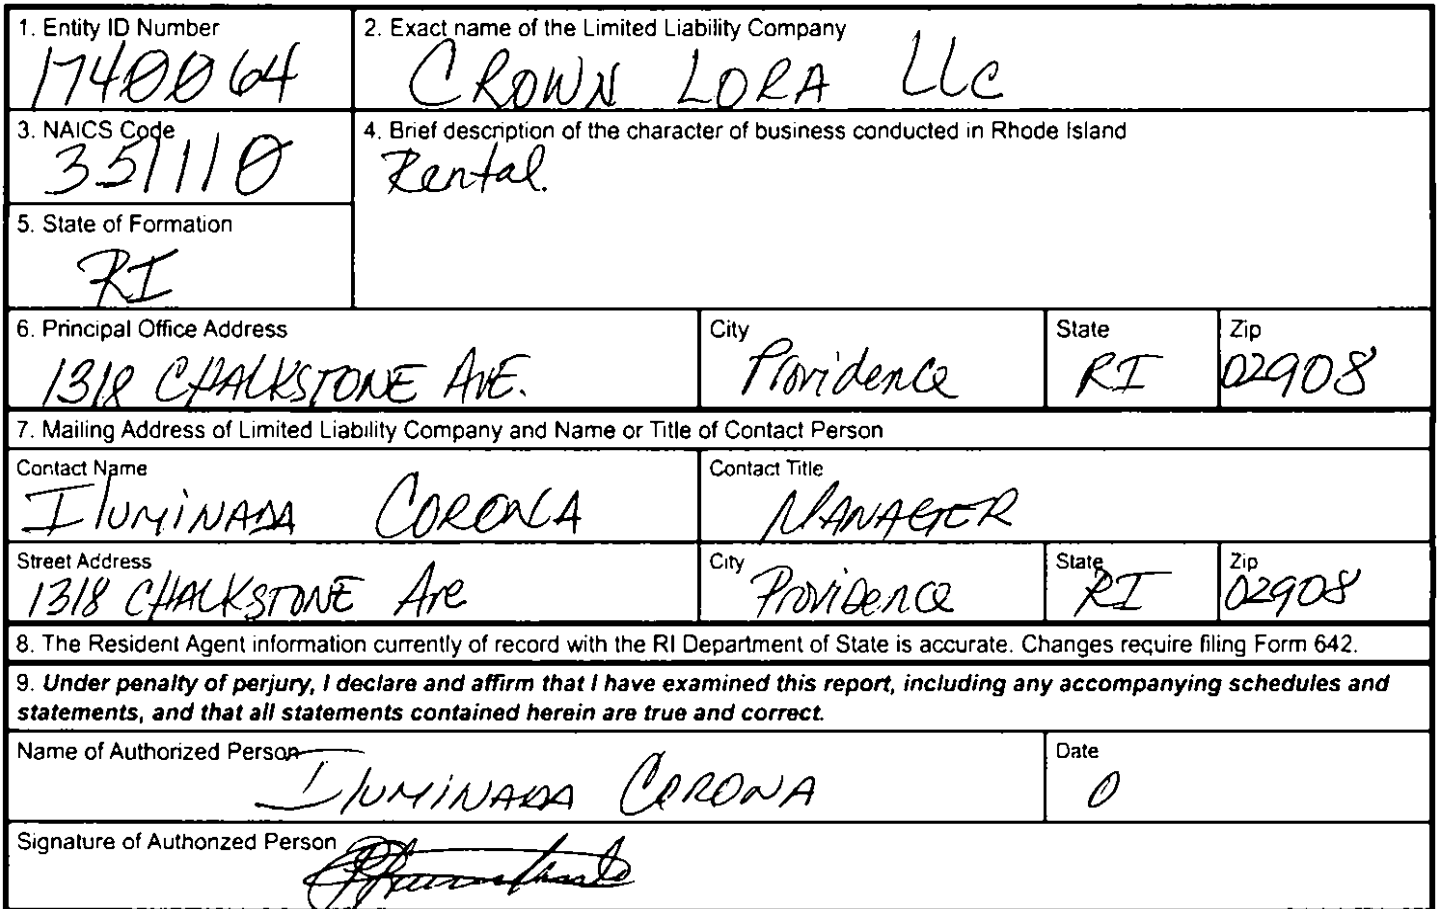 1. Entity ID Number
1740064
2. Exact name of the Limited Liability Company
CROWN LORA LLC
3. NAICS Code
351110
4. Brief description of the character of business conducted in Rhode Island
Rental.
5. State of Formation
RI
6. Principal Office Address
1318 CHALKSTONE AVE.
City
Providence
State
RI
Zip
02908
7. Mailing Address of Limited Liability Company and Name or Title of Contact Person
Contact Name
ILUMINADA CORONA
Contact Title
MANAGER
Street Address
1318 CHALKSTONE Ave
City
Providence
State
RI
Zip
02908
8. The Resident Agent information currently of record with the RI Department of State is accurate. Changes require filing Form 642.
9. Under penalty of perjury, I declare and affirm that I have examined this report, including any accompanying schedules and
statements, and that all statements contained herein are true and correct.
Name of Authorized Person
ILUMINADA CORONA
Date
0
Signature of Authorized Person